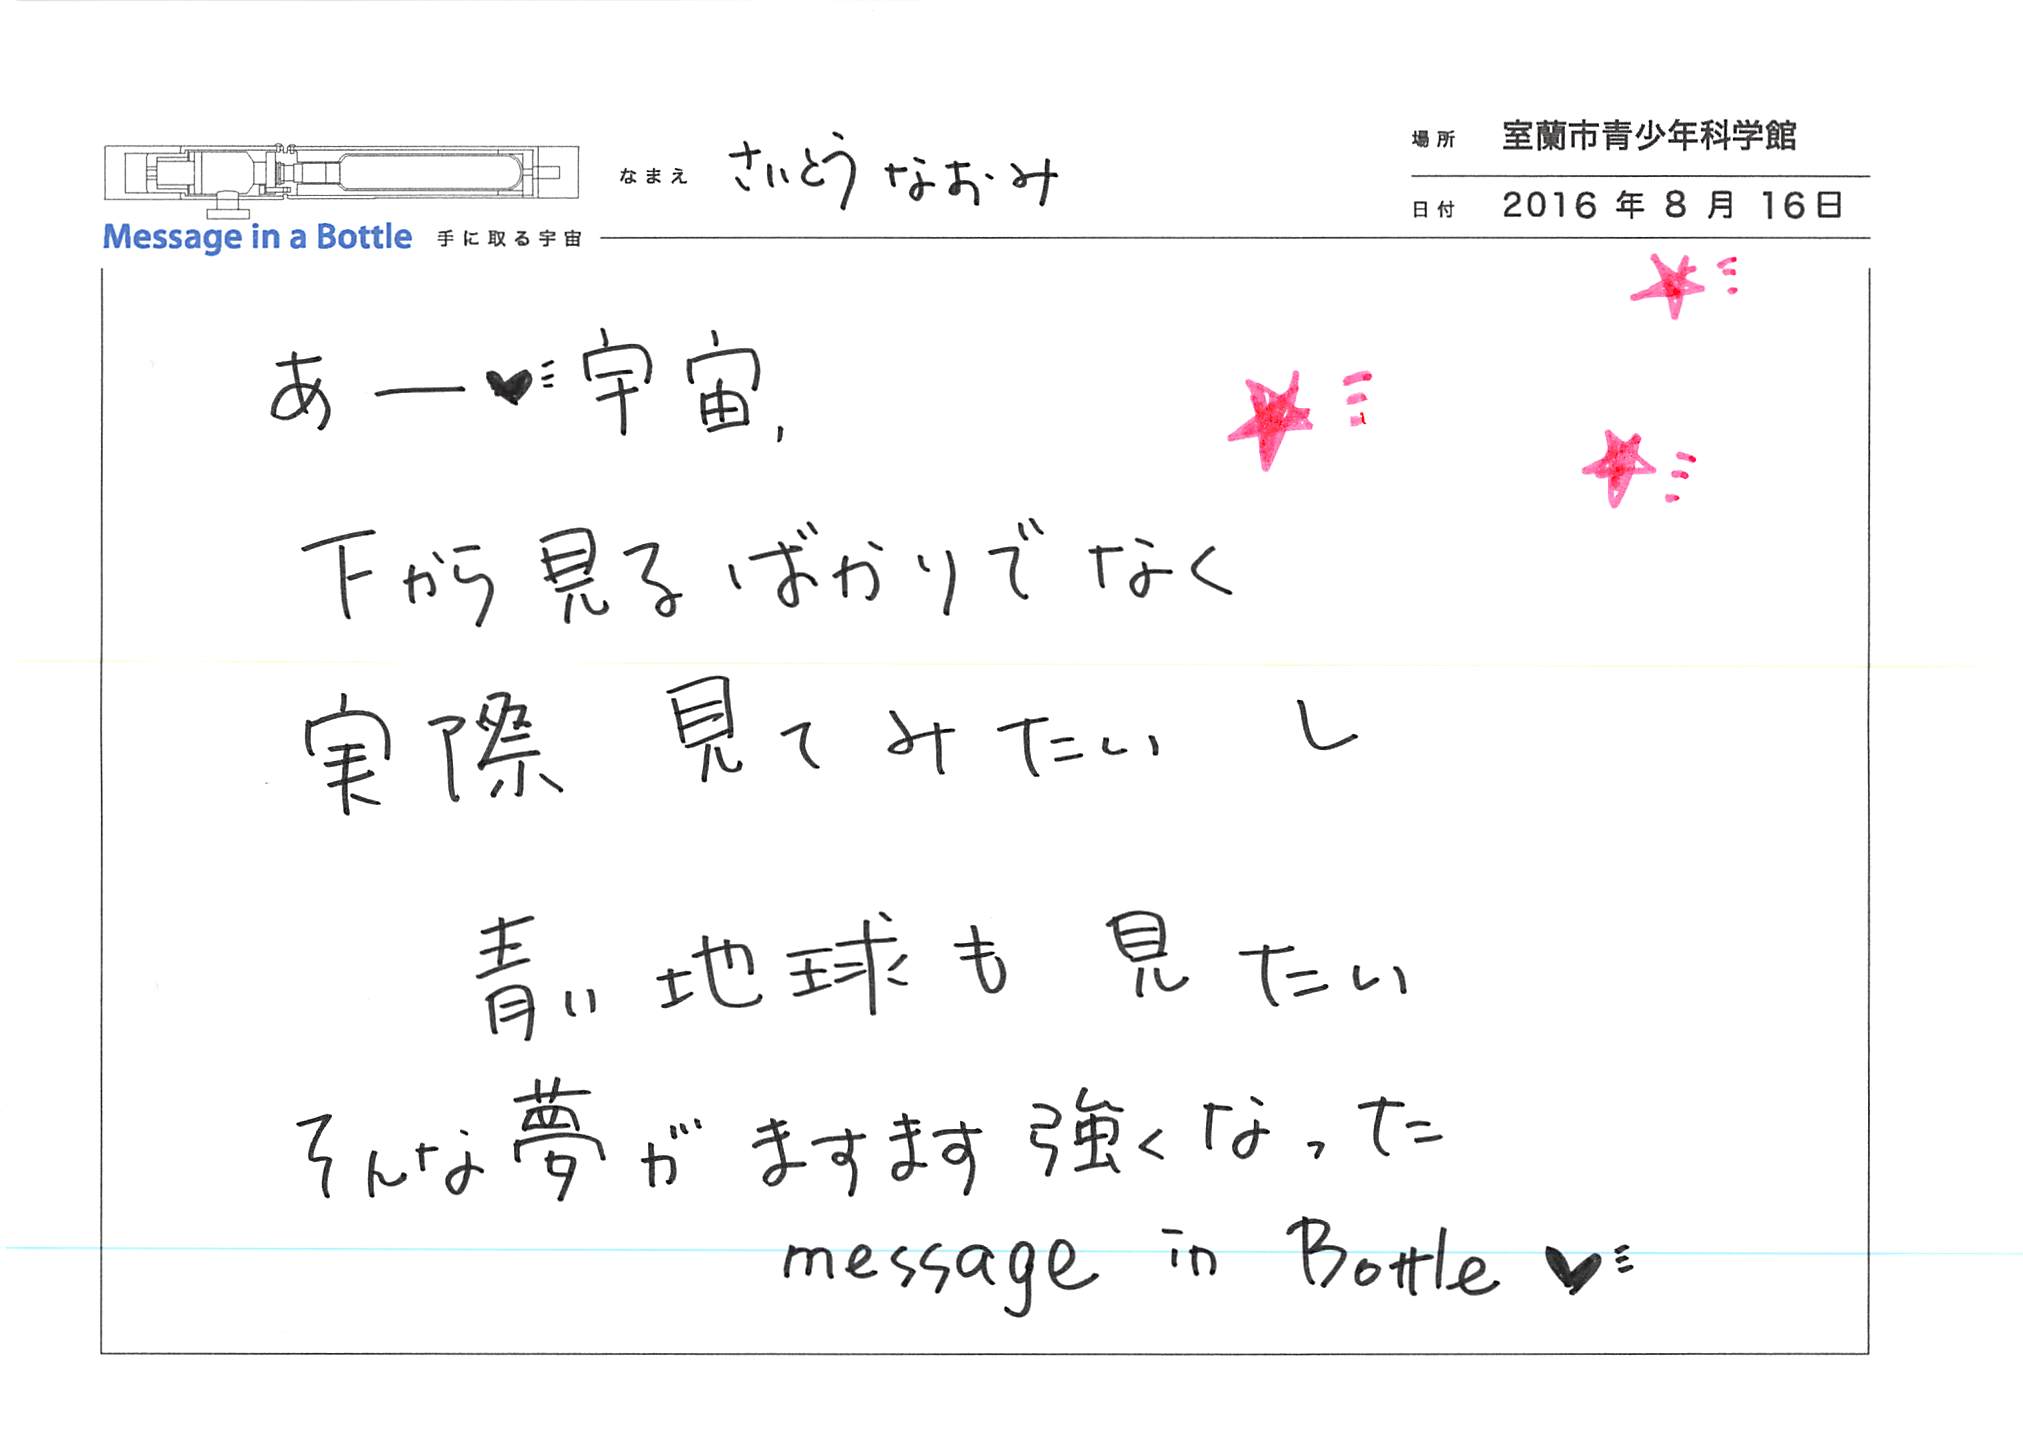 場所 室蘭市青少年科学館
なまえ さいとう なおみ
日付 2016 年 8 月 16日
Message in a Bottle 手に取る宇宙
あー♥宇宙,
下から見るばかりでなく
実際 見てみたい し
青い地球も 見たい
そんな夢がますます強くなった
message in Bottle ♥